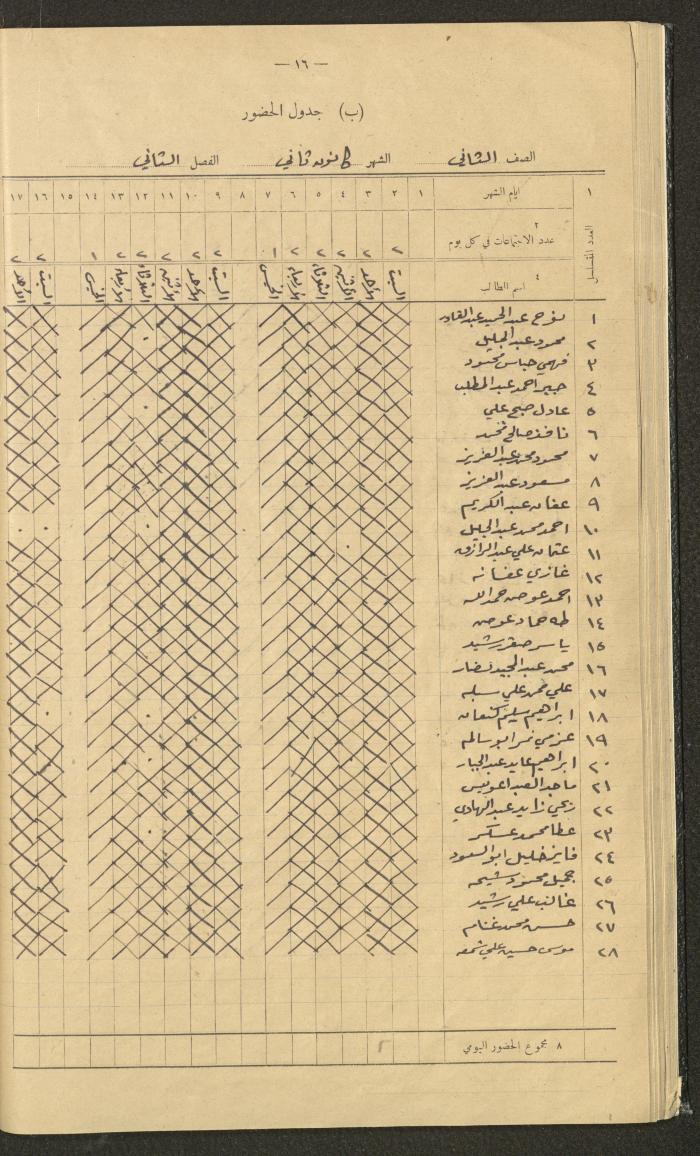 — ١٦ —
(ب) جدول الحضور
الصف الثاني الشهر كانون ثاني الفصل الثاني
١ ايام الشهر ١ ٢ ٣ ٤ ٥ ٦ ٧ ٨ ٩ ١٠ ١١ ١٢ ١٣ ١٤ ١٥ ١٦ ١٧
العدد المتسلسل
٢
عدد الاجتماعات في كل يوم ٢ ٢ ٢ ٢ ٢ ١ ٢ ٢ ٢ ٢ ٢ ١ ٢ ٢
٤
اسم الطالب السبت الأحد الأثنين الثلاثاء الأربعاء الخميس السبت الأحد الأثنين الثلاثاء الأربعاء الخميس السبت الأحد
١ نوح عبد الحميد عبد القادر
٢ محمود عبد الجليل
٣ فهمي عباس محمود
٤ جبر احمد عبد المطلب
٥ عادل صبح علي
٦ نافذ صالح محمد
٧ محمود محمد عبد العزيز
٨ مسعود عبد العزيز
٩ عفان عبد الكريم
١٠ احمد محمد عبد الجليل
١١ عثمان علي عبد الرازق
١٢ غازي عفانه
١٣ احمد عوض حمدالله
١٤ طه حماد عوض
١٥ ياسر صقر رشيد
١٦ محمد عبد المجيد نصار
١٧ علي محمد علي
١٨ ابراهيم سليم كنعان
١٩ عزمي نمر ابو سالم
٢٠ ابراهيم عايد عبد الجبار
٢١ ماجد العبد اعويس
٢٢ ربحي زايد عبد الهادي
٢٣ عطا محمد عسكر
٢٤ فايز خليل ابو السعود
٢٥ جميل محمود شيحه
٢٦ غالب علي رشيد
٢٧ حسن محمد غنام
٢٨ موسى حسين علي
٨ مجموع الحضور اليومي